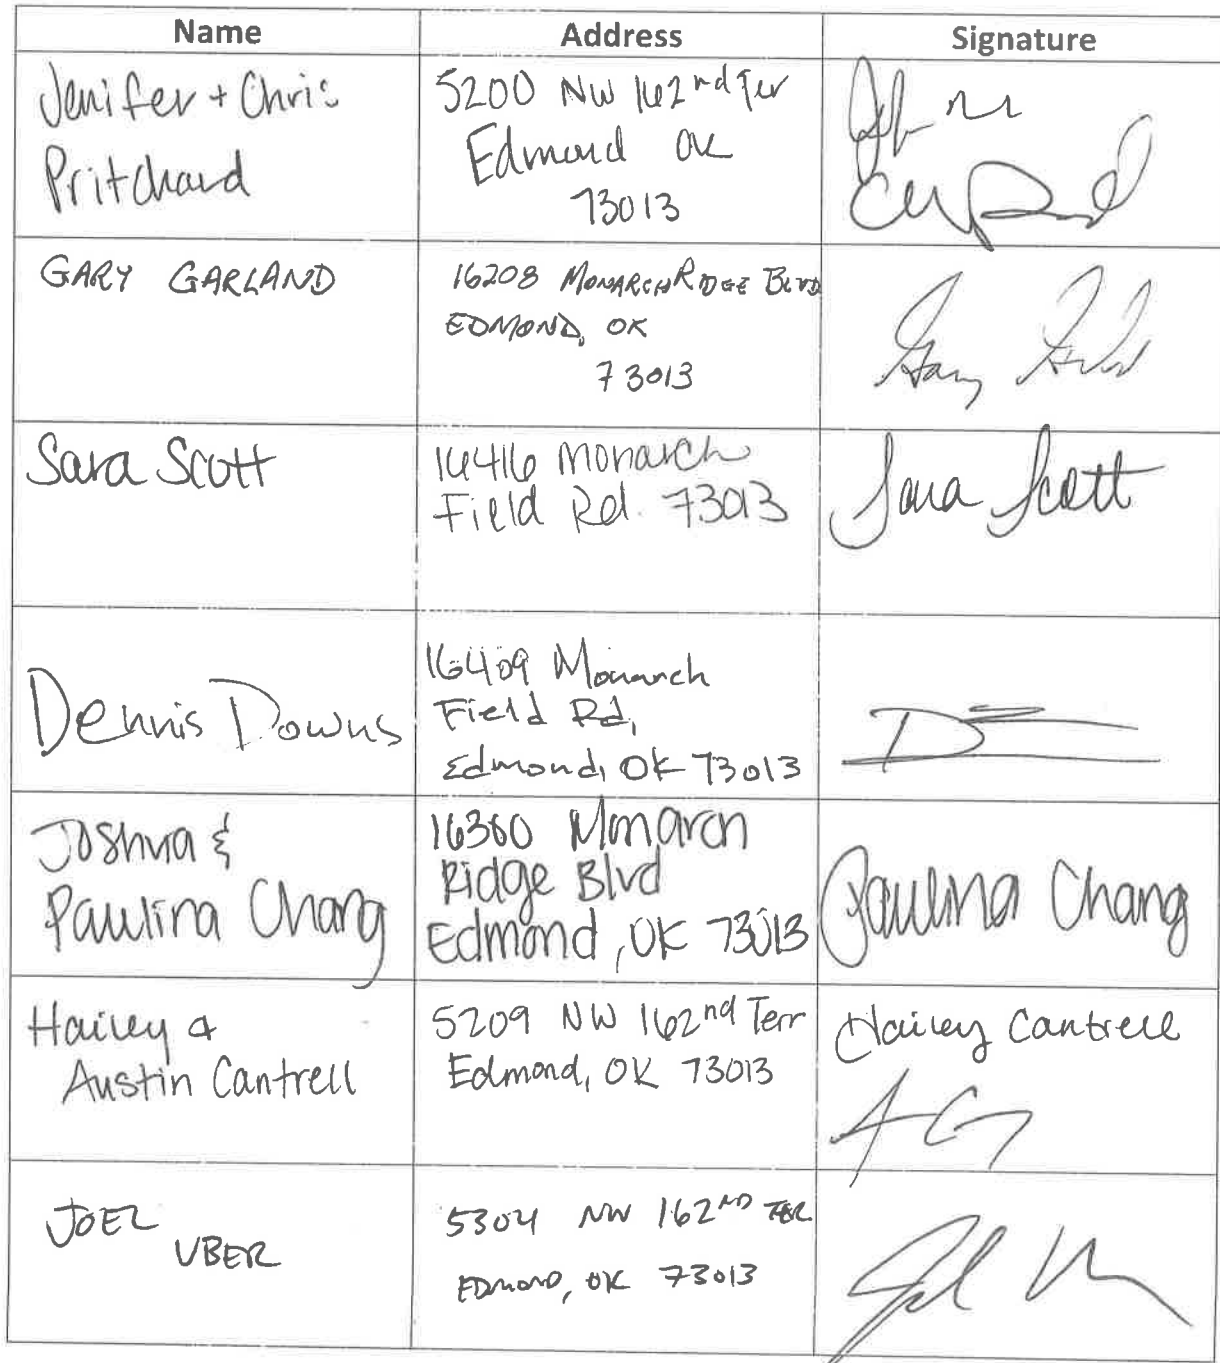 Name Address Signature
Jenifer + Chris
Pritchard
5200 NW 162nd Ter
Edmond OK
73013
GARY GARLAND
16208 MONARCH RIDGE BLVD
EDMOND, OK
73013
Sara Scott
16416 Monarch
Field Rd. 73013
Sara Scott
Dennis Downs
16409 Monarch
Field Rd,
Edmond, OK 73013
Joshua &
Paulina Chang
16360 Monarch
Ridge Blvd
Edmond, OK 73013
Paulina Chang
Hailey &
Austin Cantrell
5209 NW 162nd Terr
Edmond, OK 73013
Hailey Cantrell
JOEL
UBER
5304 NW 162ND TER
EDMOND, OK 73013